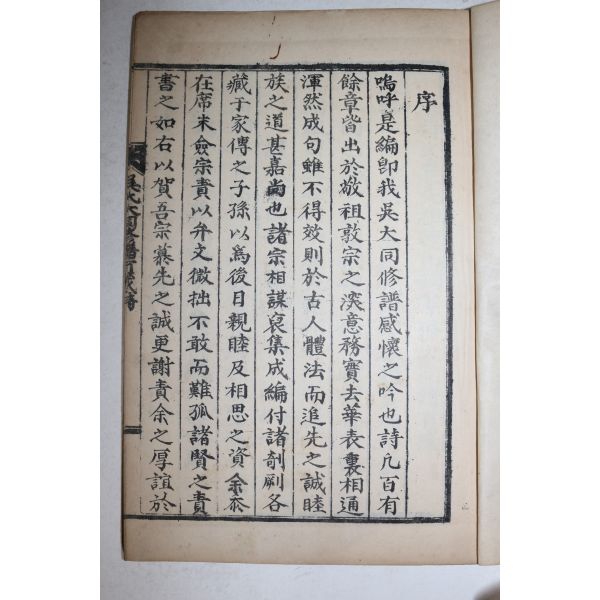 序
嗚呼是編卽我吳大同修譜感懷之吟也詩凡百有
餘章皆出於敬祖敦宗之深意務實去華表裏相通
渾然成句雖不得效則於古人體法而追先之誠睦
族之道甚嘉尙也諸宗相謀裒集成編付諸剞劂各
藏于家傳之子孫以爲後日親睦及相思之資余忝
在席末僉宗責以弁文微拙不敢而難孤諸賢之責
書之如右以賀吾宗慕先之誠更謝責余之厚誼於
吳氏大同譜